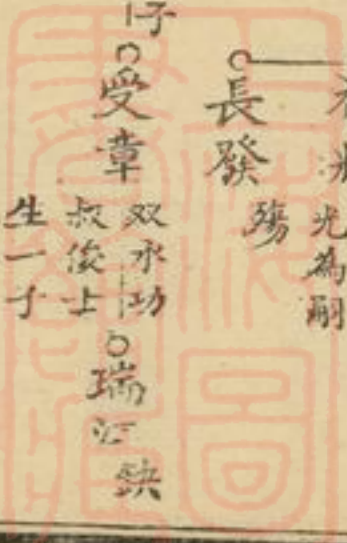 光為嗣
長發
殤
子
受章
双承功
叔俊士
生一子
瑞江
缺